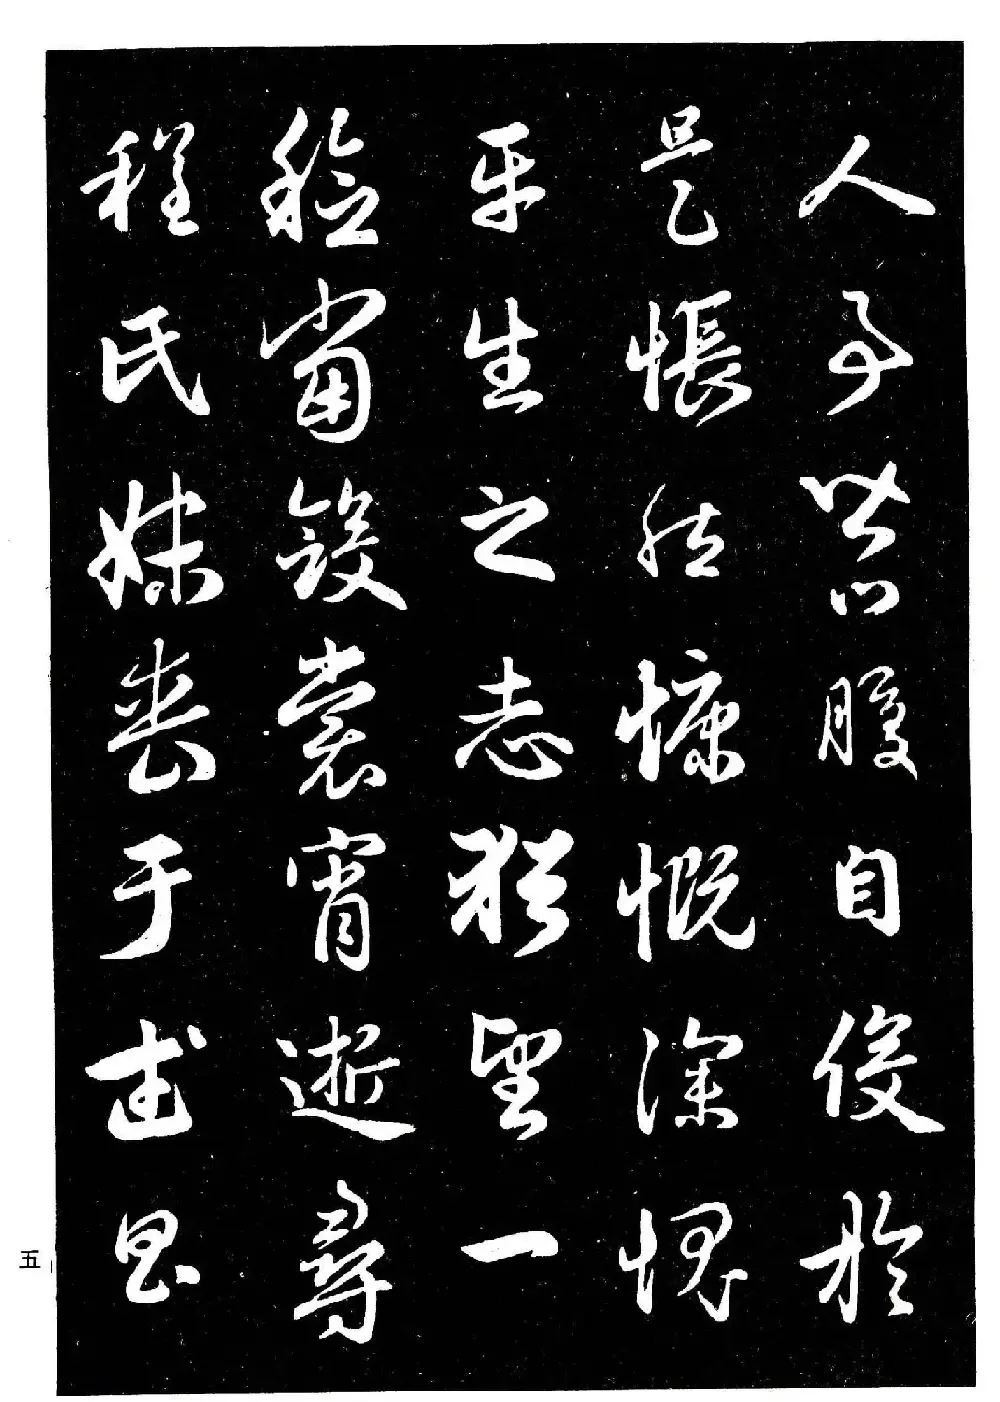 人事皆口腹自役於
是悵然慷慨深愧
平生之志猶望一
稔當斂裳宵逝尋
程氏妹喪于武昌
五